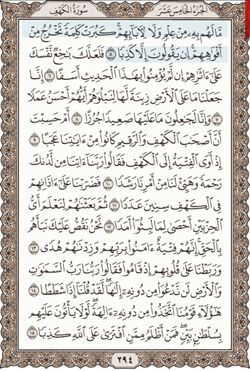 سُورَةُ الكَهْفِ الجُزْءُ الخَامِسَ عَشَرَ
مَّا لَهُم بِهِۦ مِنْ عِلْمٍ وَلَا لِـَٔابَآئِهِمْ ۚ كَبُرَتْ كَلِمَةً تَخْرُجُ مِنْ
أَفْوَٰهِهِمْ ۚ إِن يَقُولُونَ إِلَّا كَذِبًا ۝٥ فَلَعَلَّكَ بَـٰخِعٌ نَّفْسَكَ
عَلَىٰٓ ءَاثَـٰرِهِمْ إِن لَّمْ يُؤْمِنُوا۟ بِهَـٰذَا ٱلْحَدِيثِ أَسَفًا ۝٦ إِنَّا
جَعَلْنَا مَا عَلَى ٱلْأَرْضِ زِينَةً لَّهَا لِنَبْلُوَهُمْ أَيُّهُمْ أَحْسَنُ عَمَلًا
۝٧ وَإِنَّا لَجَـٰعِلُونَ مَا عَلَيْهَا صَعِيدًا جُرُزًا ۝٨ أَمْ حَسِبْتَ
أَنَّ أَصْحَـٰبَ ٱلْكَهْفِ وَٱلرَّقِيمِ كَانُوا۟ مِنْ ءَايَـٰتِنَا عَجَبًا ۝٩
إِذْ أَوَى ٱلْفِتْيَةُ إِلَى ٱلْكَهْفِ فَقَالُوا۟ رَبَّنَآ ءَاتِنَا مِن لَّدُنكَ
رَحْمَةً وَهَيِّئْ لَنَا مِنْ أَمْرِنَا رَشَدًا ۝١٠ فَضَرَبْنَا عَلَىٰٓ ءَاذَانِهِمْ
فِى ٱلْكَهْفِ سِنِينَ عَدَدًا ۝١١ ثُمَّ بَعَثْنَـٰهُمْ لِنَعْلَمَ أَىُّ
ٱلْحِزْبَيْنِ أَحْصَىٰ لِمَا لَبِثُوٓا۟ أَمَدًا ۝١٢ نَّحْنُ نَقُصُّ عَلَيْكَ نَبَأَهُم
بِٱلْحَقِّ ۚ إِنَّهُمْ فِتْيَةٌ ءَامَنُوا۟ بِرَبِّهِمْ وَزِدْنَـٰهُمْ هُدًى ۝١٣
وَرَبَطْنَا عَلَىٰ قُلُوبِهِمْ إِذْ قَامُوا۟ فَقَالُوا۟ رَبُّنَا رَبُّ ٱلسَّمَـٰوَٰتِ
وَٱلْأَرْضِ لَن نَّدْعُوَا۟ مِن دُونِهِۦٓ إِلَـٰهًا ۖ لَّقَدْ قُلْنَآ إِذًا شَطَطًا ۝١٤
هَـٰٓؤُلَآءِ قَوْمُنَا ٱتَّخَذُوا۟ مِن دُونِهِۦٓ ءَالِهَةً ۖ لَّوْلَا يَأْتُونَ عَلَيْهِم
بِسُلْطَـٰنٍۭ بَيِّنٍ ۖ فَمَنْ أَظْلَمُ مِمَّنِ ٱفْتَرَىٰ عَلَى ٱللَّهِ كَذِبًا ۝١٥
٢٩٤